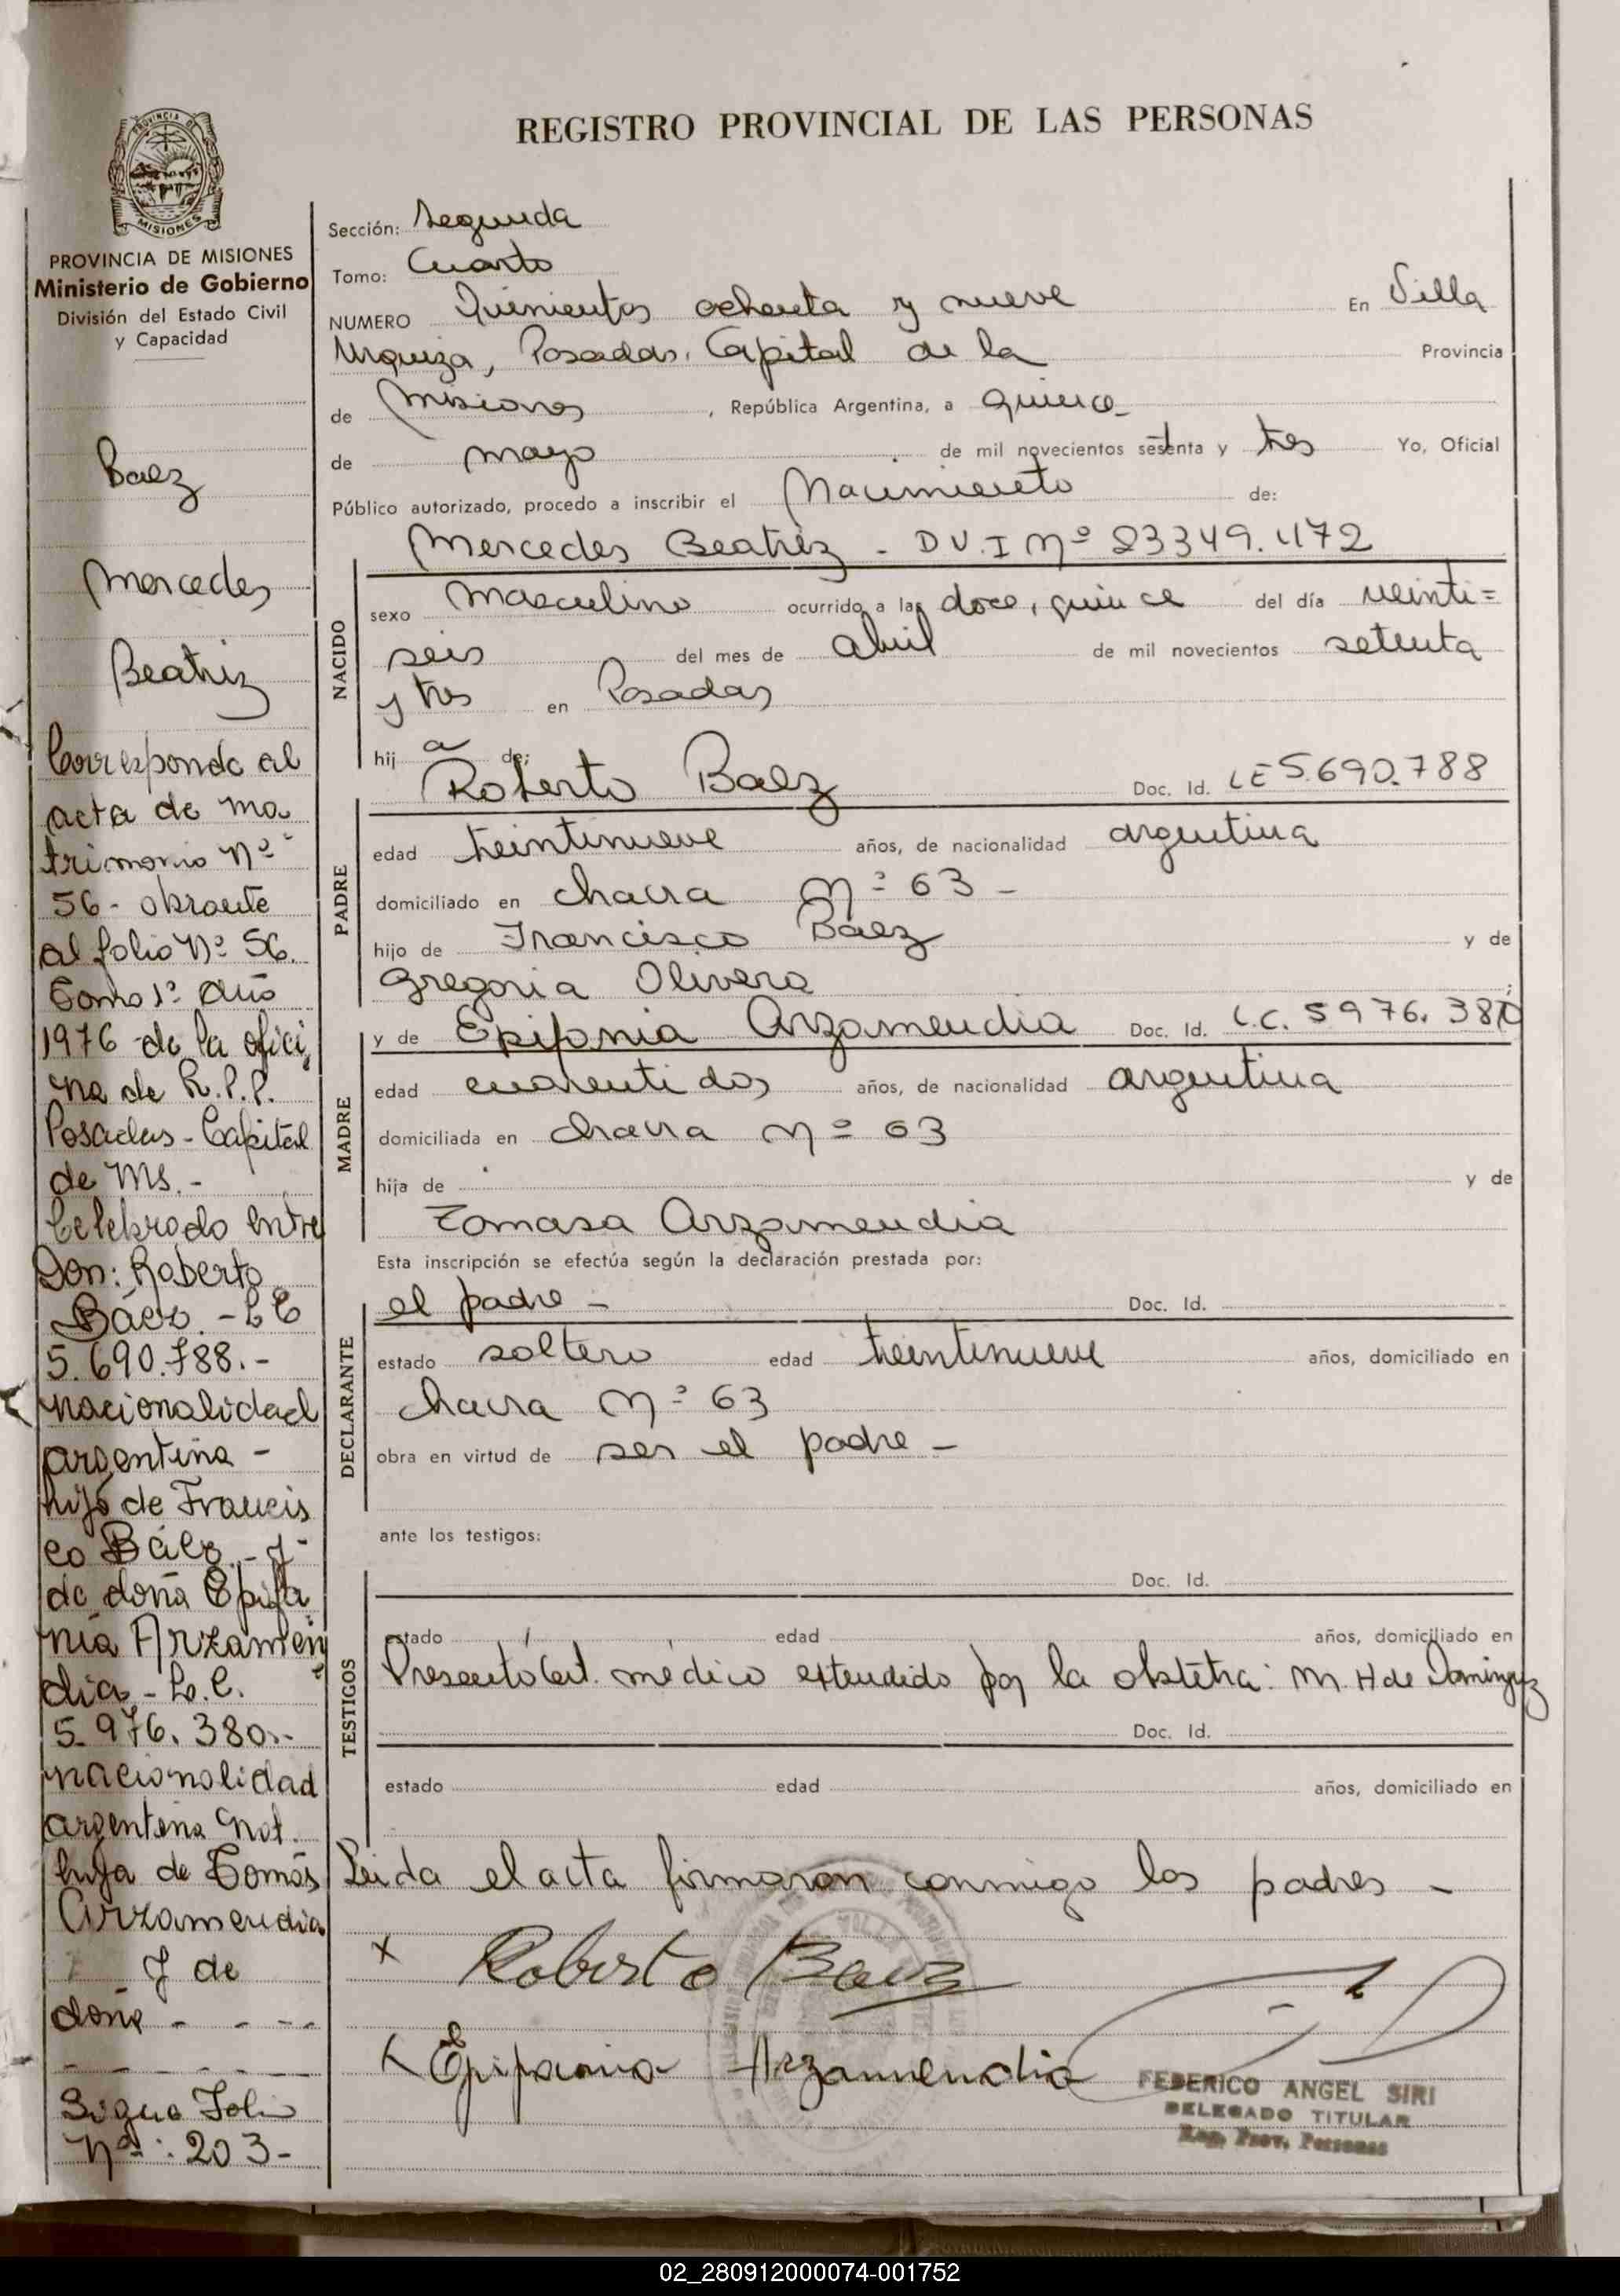 REGISTRO PROVINCIAL DE LAS PERSONAS
PROVINCIA DE
MISIONES
PROVINCIA DE MISIONES
Ministerio de Gobierno
División del Estado Civil
y Capacidad
Baez
Mercedes
Beatriz
Corresponde al
acta de ma
trimonio Nº
56 - obrante
al folio Nº 56.
Tomo 1º año
1976 de la ofici
na de R.P.P.
Posadas - Capital
de Ms. -
Celebrado entre
Don: Roberto
Báez. - L E
5.690.788. -
nacionalidad
argentina -
hijo de Francis
co Báez - y -
de doña Epifa
nia Arzamen
dia - L.C.
5.976.380.-
nacionalidad
argentina nat.
hija de Tomás
Arzamendia
y de
doña - - - -
- - - - -
Sigue Folio
Nº: 203-
Sección: Segunda
Tomo: Cuarto
NUMERO Quinientos ochenta y nueve En Villa
Urquiza, Posadas, Capital de la Provincia
de Misiones, República Argentina, a quince
de mayo de mil novecientos setenta y tres Yo, Oficial
Público autorizado, procedo a inscribir el Nacimiento de:
Mercedes Beatriz - D U. I Nº 23349.472
NACIDO
sexo masculino ocurrido a las doce, quince del día veinti=
seis del mes de abril de mil novecientos setenta
y tres en Posadas
hij a de:
Roberto Baez Doc. Id. LE 5.690.788
PADRE
edad treintinueve años, de nacionalidad argentina
domiciliado en chacra Nº 63 -
hijo de Francisco Báez y de
Gregoria Olivera ;
y de Epifania Arzamendia Doc. Id. L.C. 5976.380
MADRE
edad cuarenti dos años, de nacionalidad argentina
domiciliada en chacra Nº 63
hija de y de
Tomasa Arzamendia
Esta inscripción se efectúa según la declaración prestada por:
el padre - Doc. Id.
DECLARANTE
estado soltero edad treintinueve años, domiciliado en
chacra Nº 63
obra en virtud de ser el padre -
ante los testigos:
Doc. Id.
TESTIGOS
estado edad años, domiciliado en
Presentó Cert. médico extendido por la obstetra: M. H de Dominguez
Doc. Id.
estado edad años, domiciliado en
Leida el acta firmaron conmigo los padres -
x Roberto Baez
x Epifania Arzamendia
FEDERICO ANGEL SIRI
DELEGADO TITULAR
Reg. Prov. Personas
02_280912000074-001752